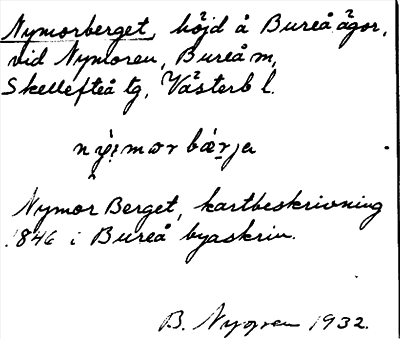 Nymorberget, höjd å Bureå ägor,
vid Nymoren, Bureå m,
Skellefteå tg, Västerb l.
Nymor Berget, kartbeskrivning
1846 i Bureå byaskrin.
B. Nygren 1932.